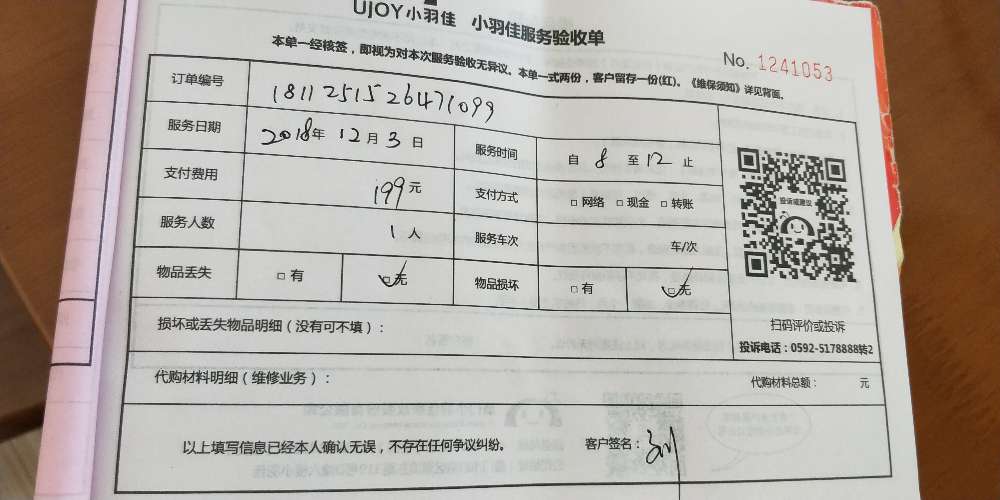 UJOY小羽佳 小羽佳服务验收单
本单一经核签，即视为对本次服务验收无异议。本单一式两份，客户留存一份(红)。《维保须知》详见背面。
No. 1241053
订单编号 1811251526471099
服务日期 2018年 12月 3日 服务时间 自 8 至 12 止
支付费用 199元 支付方式 □ 网络 □ 现金 □ 转账
服务人数 1人 服务车次 车/次
物品丢失 □ 有 □ 无 物品损坏 □ 有 □ 无
投诉或建议
扫码评价或投诉
投诉电话：0592-5178888转2
损坏或丢失物品明细（没有可不填）：
代购材料明细（维修业务）： 代购材料总额： 元
以上填写信息已经本人确认无误，不存在任何争议纠纷。 客户签名：